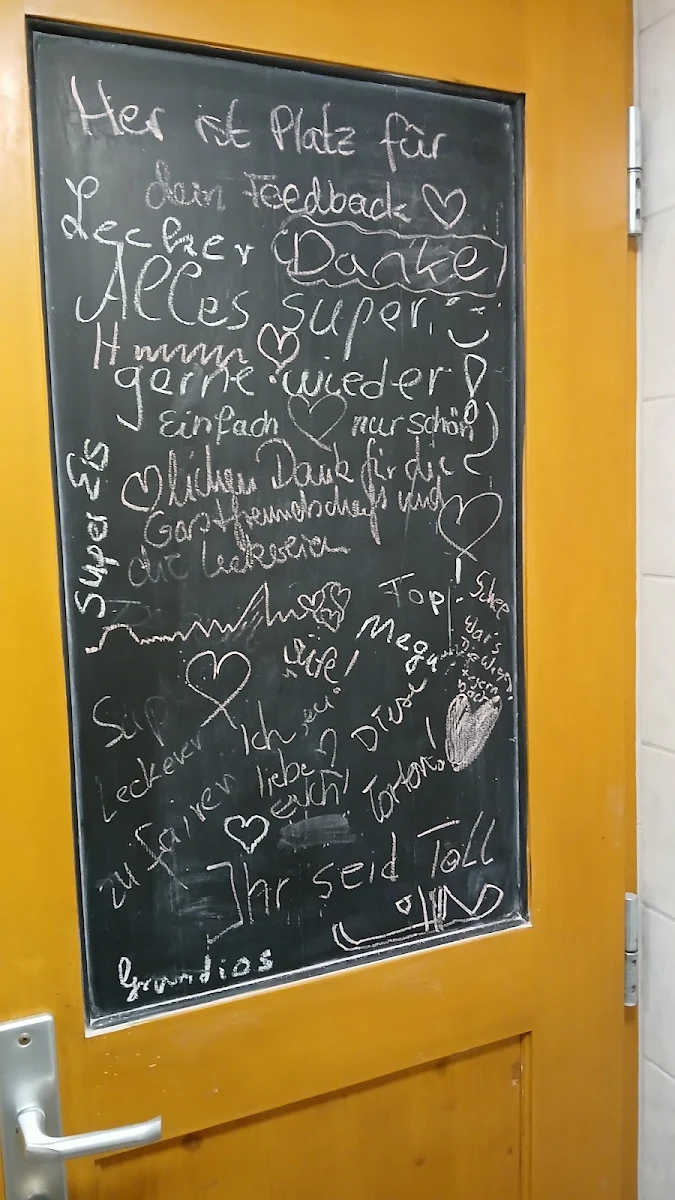 Her ist Platz für
dein Feedback
Lecker Danke
Alles super.
Hmmmm
gerne wieder!
Einfach nur schön
Super Eis
lichen Dank für die
Gastfreundschaft und
die Leckereien
Top!
Mega
Schee
war's
Ich
liebe
euch!
Diese
Torten!
Leckeier
zu fairen
Ihr seid Toll
Grandios